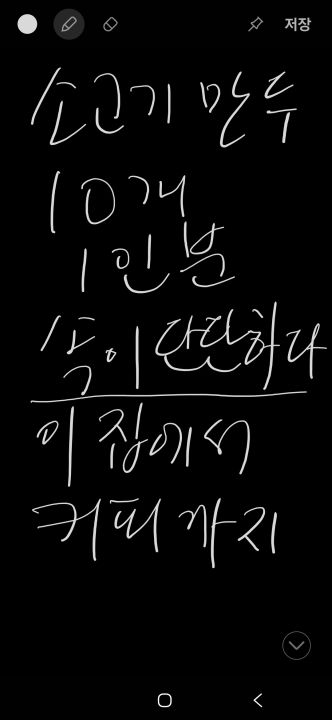 저장
소고기 만두
10개
1인분
속이 단단하다
이 집에서
커피까지